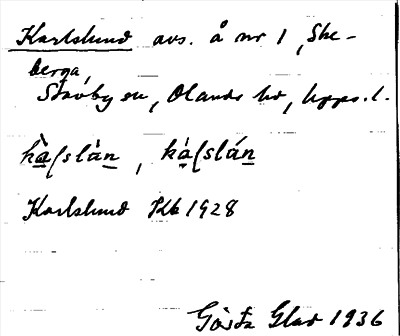 Karlslund avs. å nr 1, Ske-
berga,
Stavby sn, Olands hd, Upps. l.
Karlslund Kb 1928
Gösta Glad 1936